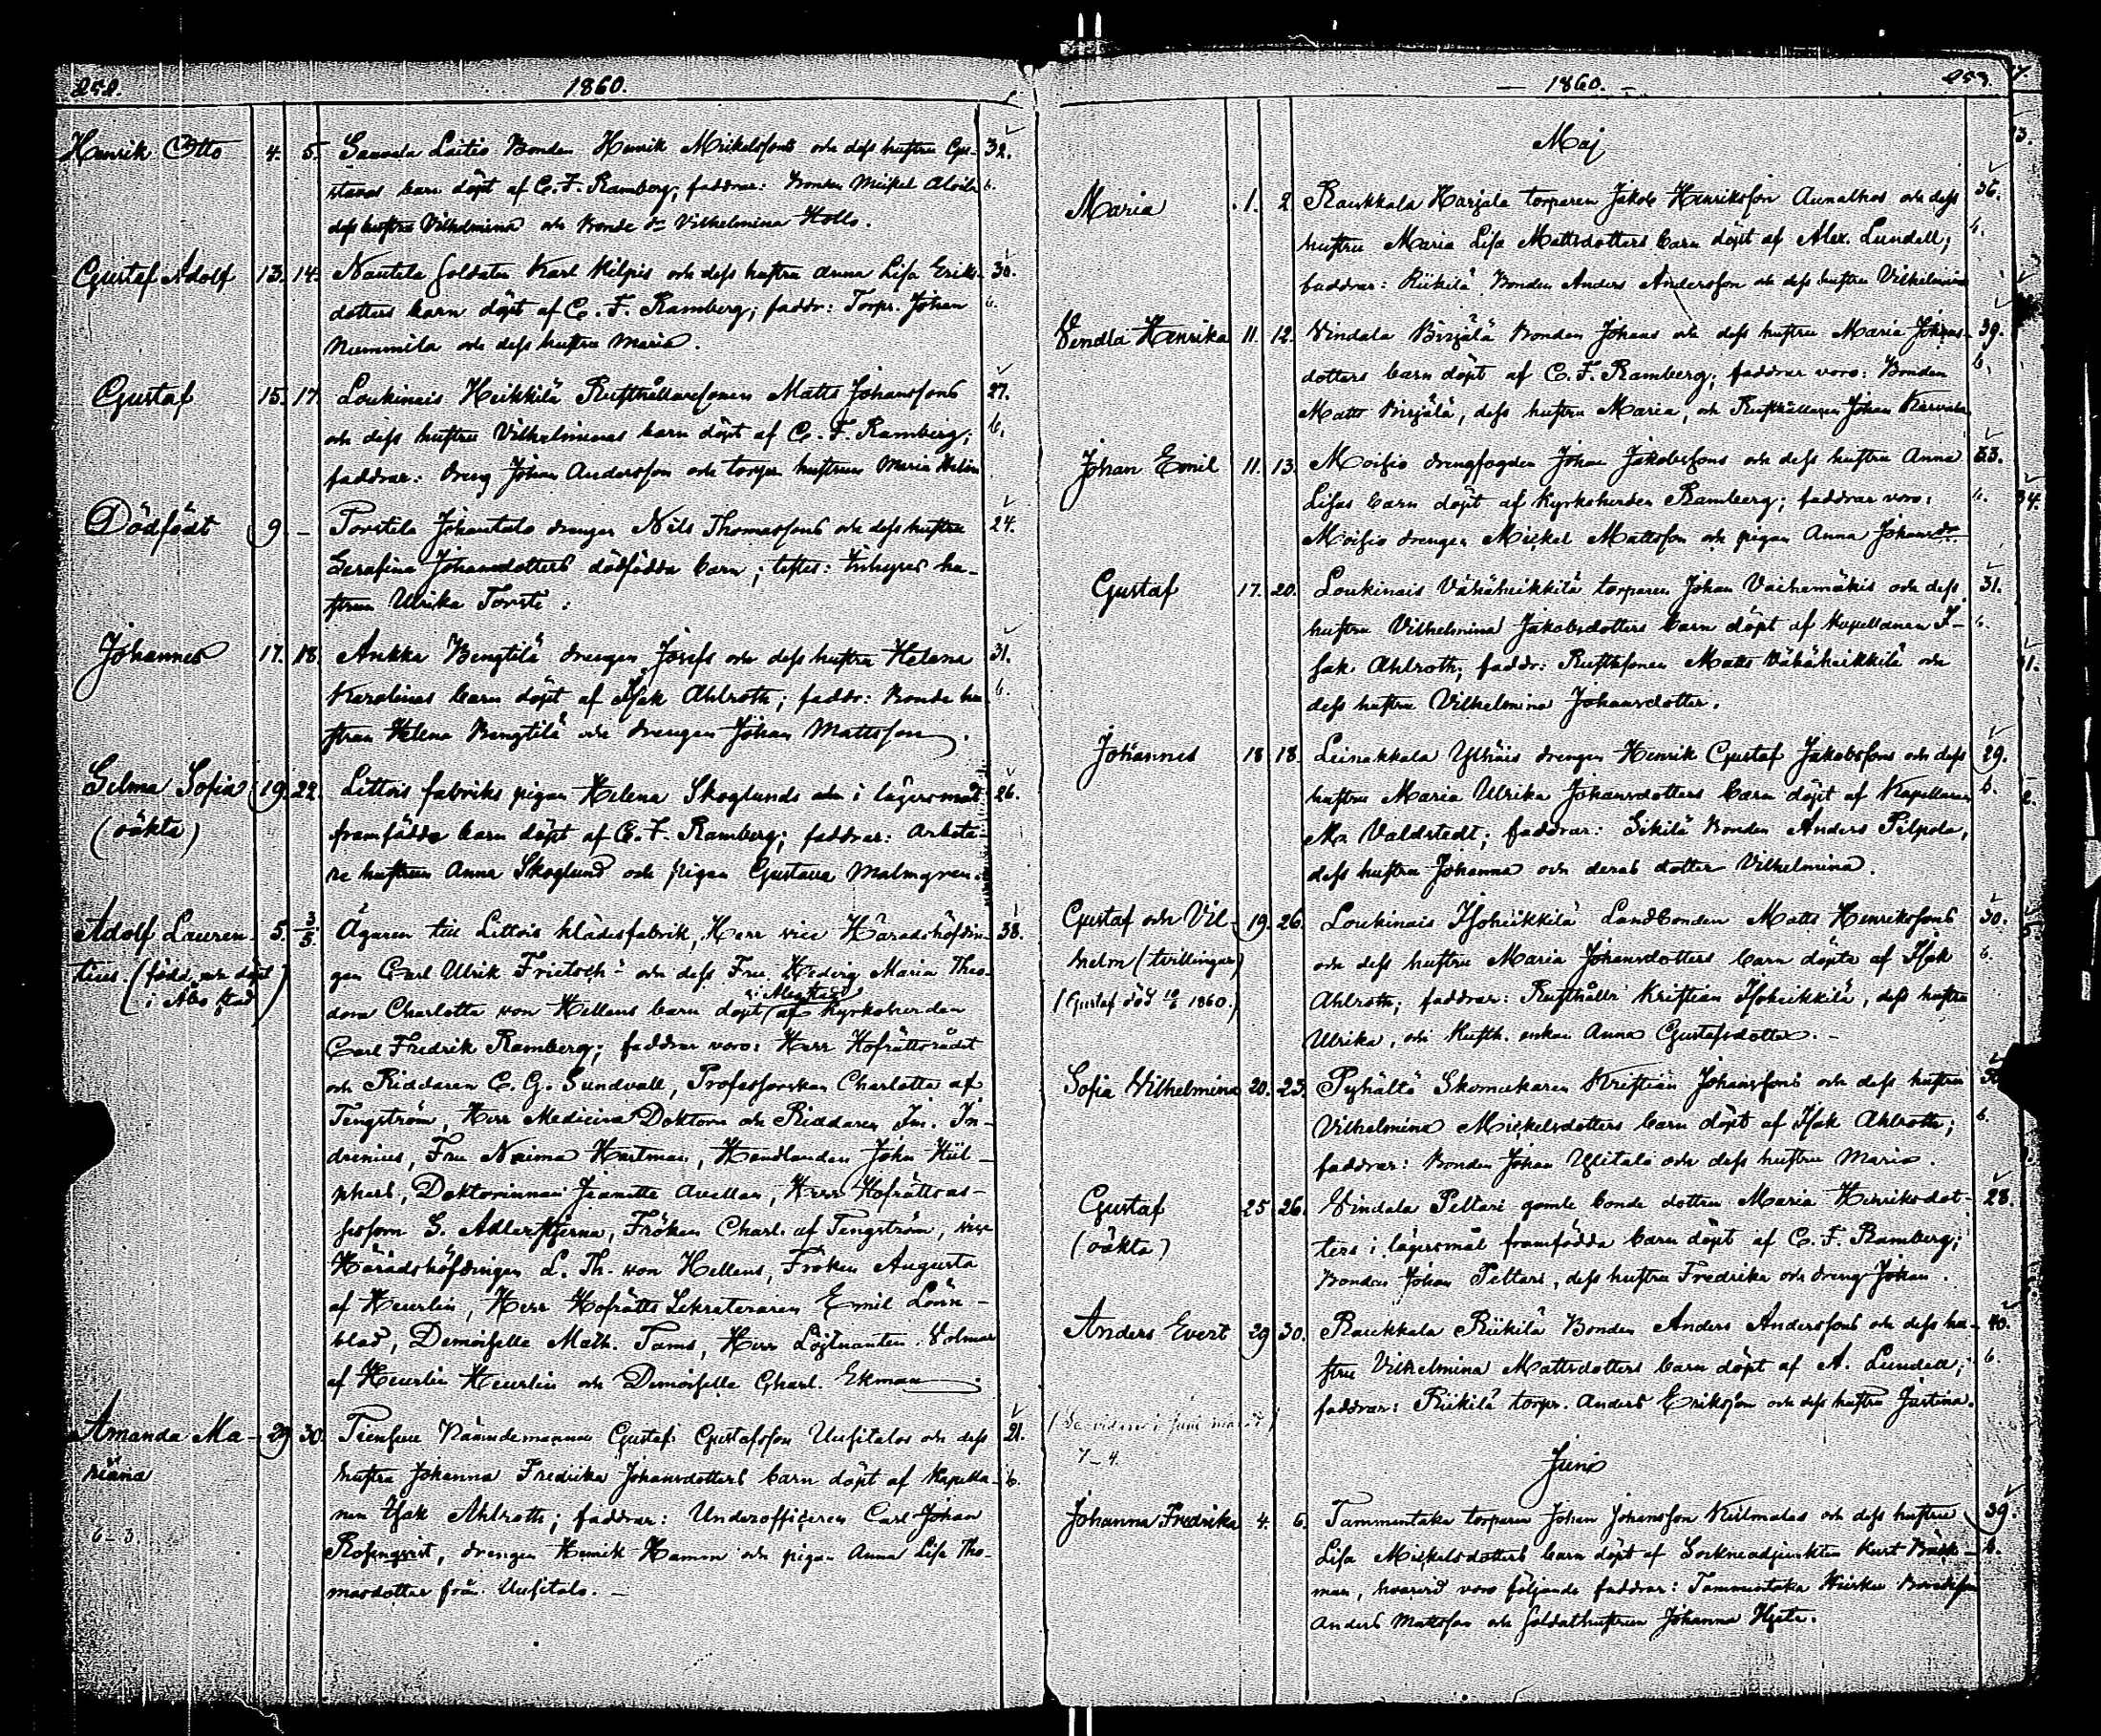 252. 1860.
Henrik Otto 4. 5. Sauvala Laitis Bonden Henrik Mikelssons och dess hustru Gus- 32.
stavas barn döpt af C. F. Ramberg; faddrar: Bonden Mickel 6.
dess hustru Vilhelmina och Bonde dr Vilhelmina Hollo.
Gustaf Adolf 13. 14. Nautela Soldaten Karl Kilpis och dess hustru Anna Lisa Eriks- 30.
dotters barn döpt af C. F. Ramberg; faddr: Torpr. Johan 6.
Nummila och dess hustru Maria.
Gustaf 15. 17. Loukinais Heikkilä Rusthållaresonen Matts Johanssons 27.
och dess hustru Vilhelminas barn döpt af C. F. Ramberg; 6.
faddrar: dreng Johan Andersson och torpar hustrun Maria Helin
Dödfödt 9 – Torstila Johantalo drengen Nils Thomassons och dess hustru 24.
Serafina Johansdotters dödfödda barn; testes: Inhyses hu-
strun Ulrika Torsti:
Johannes 17. 18. Ankka Bengtilä drengen Josefs och dess hustru Helena 31.
Karolinas barn döpt af Isak Ahlroth; faddr: Bonde hu- 6.
strun Helena Bengtilä och drengen Johan Mattsson.
Selma Sofia 19. 22. Littois fabriks pigan Helena Skoglunds i lägersmål 26.
(oäkta) framfödda barn döpt af C. F. Ramberg; faddrar: Arbeta-
re hustrun Anna Skoglund och pigan Gustava Malmgren.
Adolf Lauren- 5. 3/5 Ägaren till Littois klädesfabrik, Herr vice Häradshöfdin- 38.
tius. (född och döpt gen Carl Ulrik Frietsch och dess Fru Hedvig Maria Theo-
i Åbo stad) dora Charlotta von Hellens barn döpt af Kyrkoherden
Carl Fredrik Ramberg; faddrar voro: Herr Hofrättsrådet
och Riddaren C. G. Sundvall, Professorskan Charlotta af
Tengström, Herr Medicine Doktorn och Riddaren Im. In-
drenius, Fru Naima Hartman, Handlanden John Hül-
phers, Doktorinnan Jeanette Avellan, Herr Hofrättsas-
sessorn G. Adlerstjerna, Fröken Charl. af Tengström, vice
Häradshöfdingen L. Th. von Hellens, Fröken Augusta
af Heurlin, Herr Hofrätts Sekreteraren Emil Lönn-
blad, Demoiselle Math. Tams, Herr Löjtnanten Volmar
af Heurlin Heurlin och Demoiselle Charl. Ekman
Amanda Ma- 29 30. Nämndemannen Gustaf Gustafsson Uusitalos och dess 21.
riana hustru Johanna Fredrika Johansdotters barn döpt af Kapella- 6.
nen Isak Ahlroth; faddrar: Underofficeren Carl Johan
6–3 Rosenqvist, drengen Henrik Hamm och pigan Anna Lisa Tho-
masdotter från Uusitalo. –
– 1860. – 253.
Maj
Maria 1. 2. Raukkala Harjala torparen Jakob Henriksson Aunalhos och dess 36.
hustru Maria Lisa Mattsdotters barn döpt af Alex. Lundell; 6.
faddrar: Riikilä Bonden Anders Andersson och dess hustru Vilhelmina
Vendla Henrika 11. 12. Vindala Birjälä Bonden Johans och dess hustru Maria Johans- 39.
dotters barn döpt af C. F. Ramberg; faddrar voro: Bonden 6.
Matts Birjälä, dess hustru Maria, och Rusthållaren Johan
Johan Emil 11. 13. Moisio drengfogden Johan Jakobssons och dess hustru Anna 33.
Lisas barn döpt af Kyrkoherden Ramberg; faddrar voro: 6.
Moisio drengen Mickel Mattsson och pigan Anna Johansdr
Gustaf 17. 20. Loukinais Vähäheikkilä torparen Johan Vaihemäkis och dess 31.
hustru Vilhelmina Jakobsdotters barn döpt af Kapellanen I- 6.
sak Ahlroth; faddr: Rusth.sonen Matts Vähäheikkilä och
dess hustru Vilhelmina Johansdotter.
Johannes 18 18. Leinakkala Ylhäis drengen Henrik Gustaf Jakobssons och dess 29.
hustru Maria Ulrika Johansdotters barn döpt af Kapellanen 6.
Valdstedt; faddrar: Sikilä Bonden Anders Pilpola,
dess hustru Johanna och deras dotter Vilhelmina.
Gustaf och Vil- 19. 26. Loukinais Isoheikkilä Landbonden Matts Henrikssons 30.
helm (tvillingar) och dess hustru Maria Johansdotters barn döpte af Isak 6.
(Gustaf död 1860.) Ahlroth; faddrar: Rusthållr Kristian Isoheikkilä, dess hustru
Ulrika, och Rusth. enkan Anna Gustafsdotter. –
Sofia Vilhelmina 20. 23. Pyhältö Skomakaren Kristian Johanssons och dess hustru
Vilhelmina Mickelsdotters barn döpt af Isak Ahlroth; 6.
faddrar: Bonden Johan Ylitalo och dess hustru Maria.
Gustaf 25 26. Vindala Peltari gamle bonde dottren Maria Henriksdot- 28.
(oäkta) ters i lägersmål framfödda barn döpt af C. F. Ramberg;
Bonden Johan Peltari, dess hustru Fredrika och dreng Johan.
Anders Evert 29 30. Raukkala Riikilä Bonden Anders Anderssons och dess hu- 40.
stru Vilhelmina Mattsdotters barn döpt af A. Lundell; 6.
faddrar: Riikilä torpr. Anders Eriksson och dess hustru Justina.
(Se vidare i Juni månad)
7–4.
Juni
Johanna Fredrika 4. 6. Tammentaka torparen Johan Johansson Kiilmalas och dess hustru 39.
Lisa Mickelsdotters barn döpt af Sockneadjunkten Kurt Bäck- 6.
man, hvarvid voro följande faddrar: Tammentaka
Anders Mattsson och Soldathustrun Johanna